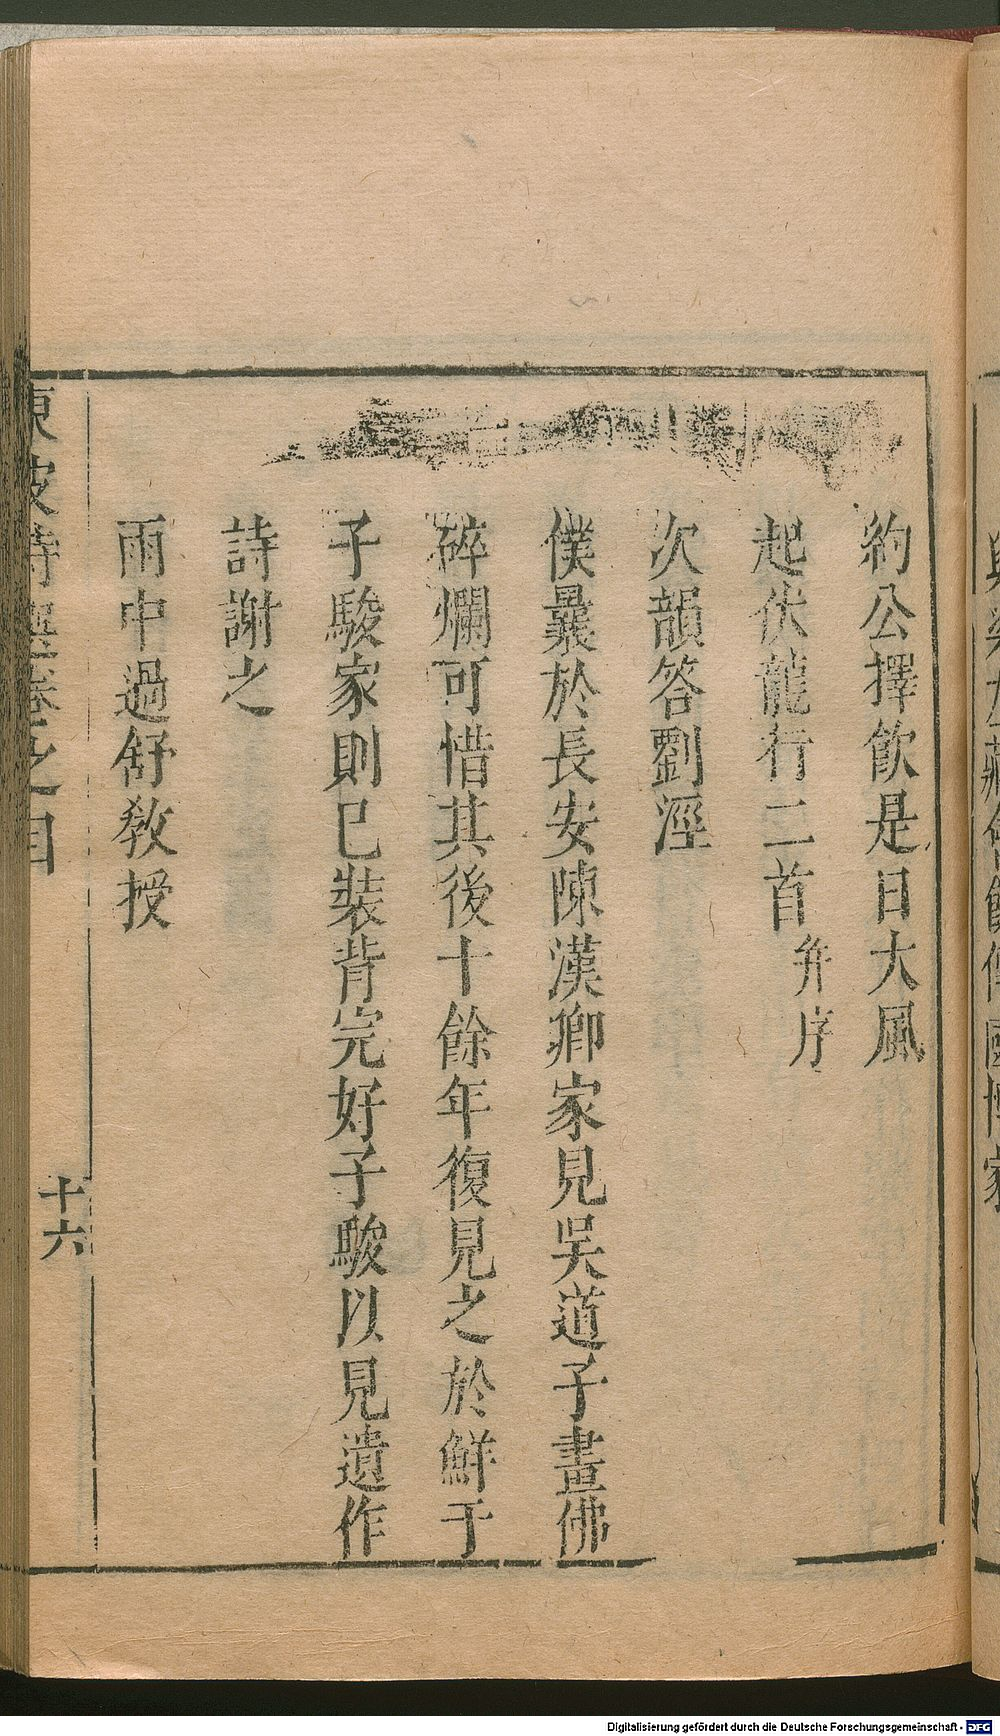 約公擇飲是日大風
起伏龍行二首并序
次韻答劉涇
僕曩於長安陳漢卿家見吳道子畫佛
碎爛可惜其後十餘年復見之於鮮于
子駿家則已裝背完好子駿以見遺作
詩謝之
雨中過舒敎授
東坡詩選卷之目
十六
Digitalisierung gefördert durch die Deutsche Forschungsgemeinschaft - DFG